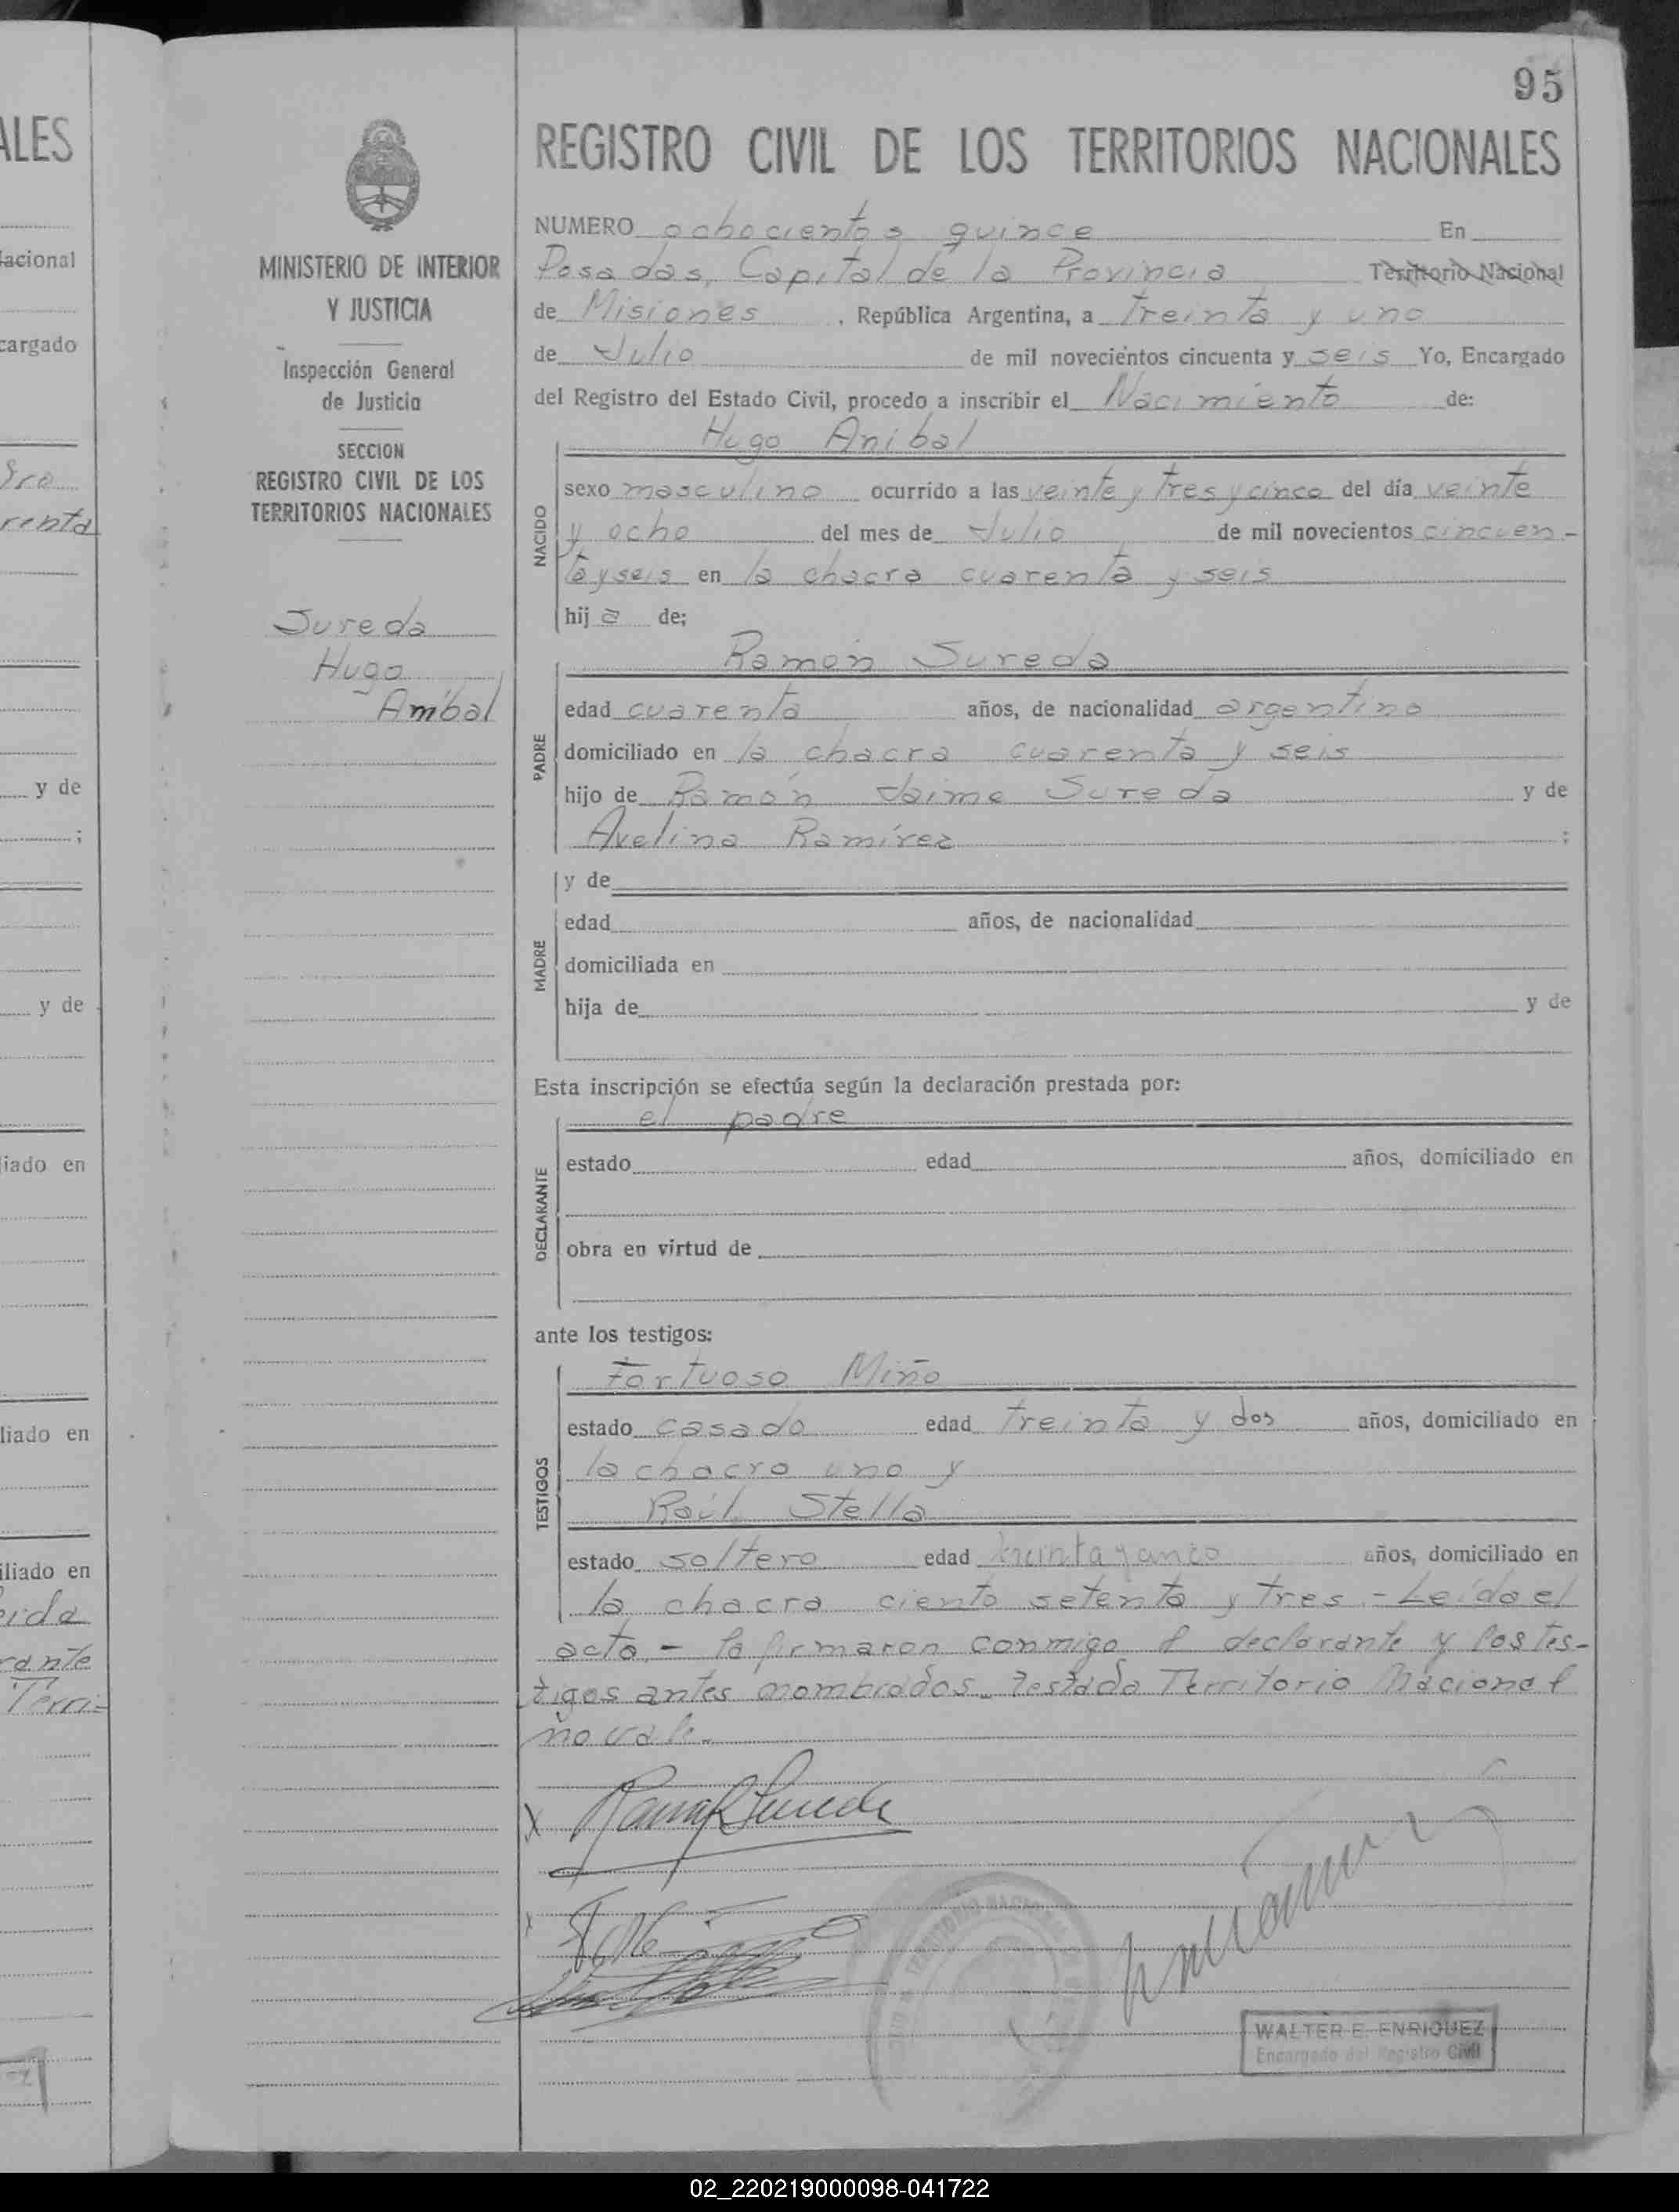 95
ALES
REGISTRO CIVIL DE LOS TERRITORIOS NACIONALES
NUMERO ochocientos quince En
Posadas, Capital de la Provincia Territorio Nacional
de Misiones , República Argentina, a treinta y uno
de Julio de mil novecientos cincuenta y seis Yo, Encargado
del Registro del Estado Civil, procedo a inscribir el Nacimiento de:
MINISTERIO DE INTERIOR
Y JUSTICIA
Inspección General
de Justicia
SECCION
REGISTRO CIVIL DE LOS
TERRITORIOS NACIONALES
Sureda
Hugo
Aníbal
NACIDO
Hugo Aníbal
sexo masculino ocurrido a las veinte y tres y cinco del día veinte
y ocho del mes de Julio de mil novecientos cincuen-
ta y seis en la chacra cuarenta y seis
hij a de;
PADRE
Ramón Sureda
edad cuarenta años, de nacionalidad argentino
domiciliado en la chacra cuarenta y seis
hijo de Ramón Jaime Sureda y de
Avelina Ramírez ;
MADRE
y de
edad años, de nacionalidad
domiciliada en
hija de y de
Esta inscripción se efectúa según la declaración prestada por:
DECLARANTE
el padre
estado edad años, domiciliado en
obra en virtud de
ante los testigos:
TESTIGOS
Fortuoso Miño
estado casado edad treinta y dos años, domiciliado en
la chacra uno y
Raúl Stella
estado soltero edad treinta y cinco años, domiciliado en
la chacra ciento setenta y tres - Leída el
acta, - la firmaron conmigo el declarante y los tes-
tigos antes nombrados. Testado Territorio Nacional
no vale.
WALTER E. ENRIQUEZ
Encargado del Registro Civil
lacional
cargado
renta
y de
;
y de
liado en
liado en
iliado en
eida
rante
Terri-
02_220219000098-041722